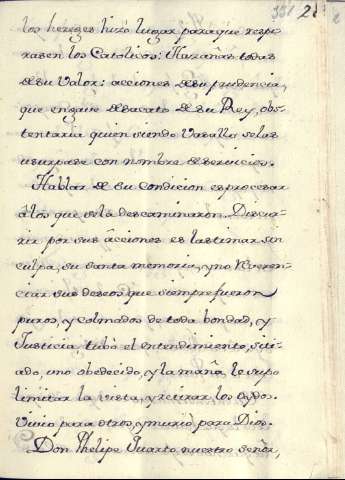 331 2
los hereges hizo lugar para que respi-
rasen los Catolicos: Hazañas todas
de su Valor: acciones de su prudencia,
que en grave desacato de su Rey, obs-
tentaria quien siendo Vasallo se las
usurpase con nombre de servicios.
Hablar de su condicion es procesar
á los que se la descaminaron. Discur-
rir por sus acciones es lastimar sin
culpa, su santa memoria, y no Reveren-
ciar sus deseos que siempre fueron
puros, y colmados de toda bondad, y
Justicia, tubo el entendimiento, siti-
ado, y no obedecido, y la maña, le supo
limitar la vista, y retirar los oydos.
Vivio para otros, y murio para Dios.
Don Phelipe Quarto nuestro señor,